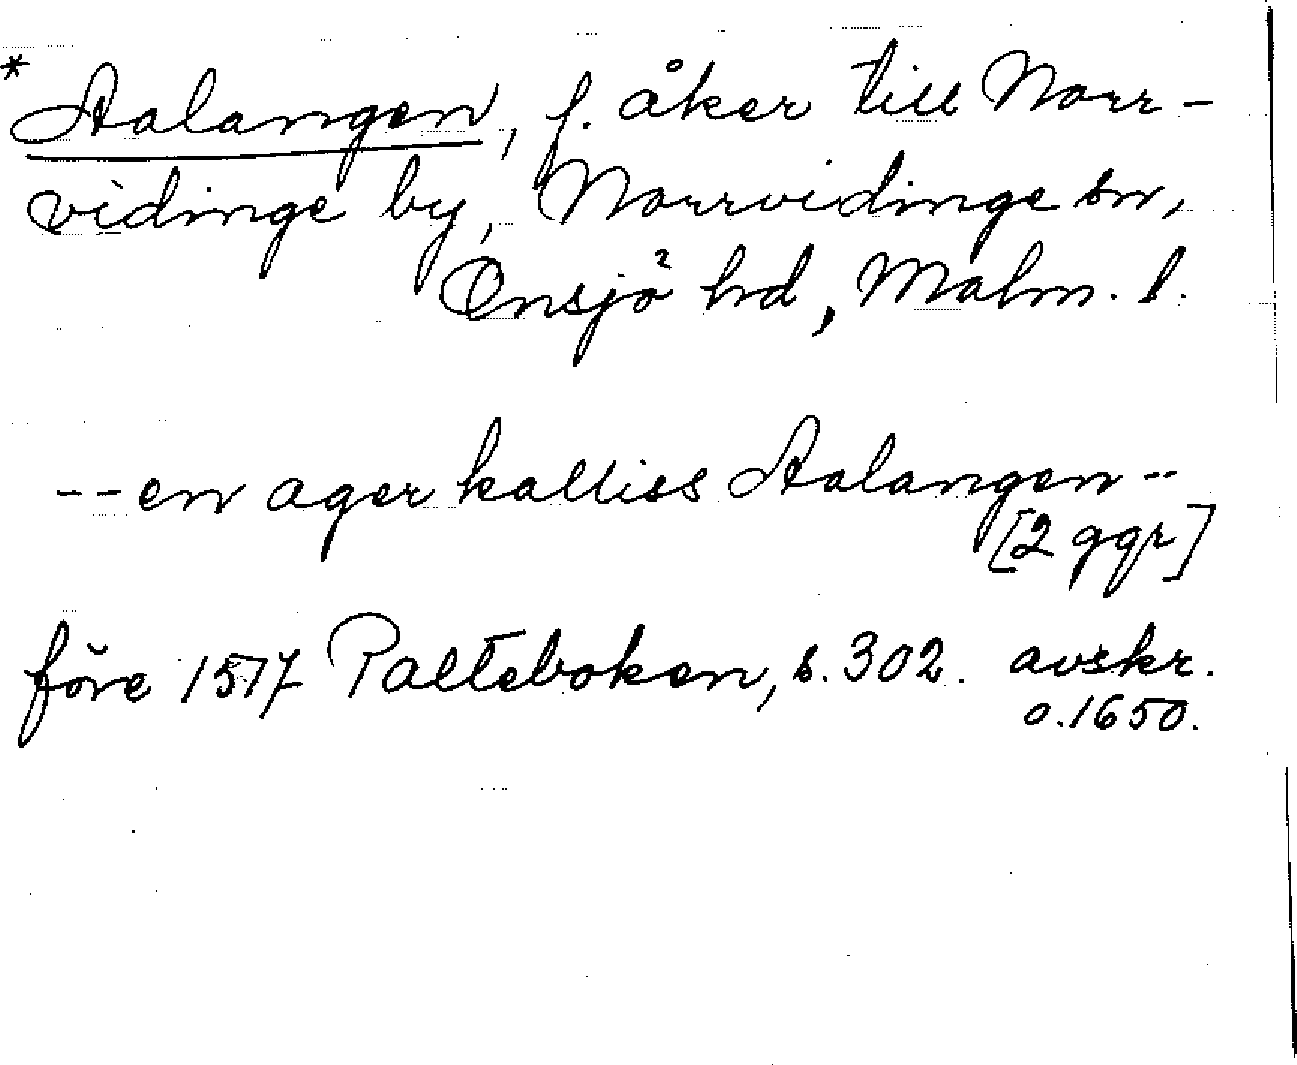 * Aalangen, f. åker till Norr-
vidinge by, Norrvidinge sn,
Onsjö hd, Malm. l.
-- en ager kalliss Aalangen --
[2 ggr]
före 1517 Palteboken, s. 302. avskr.
o. 1650.